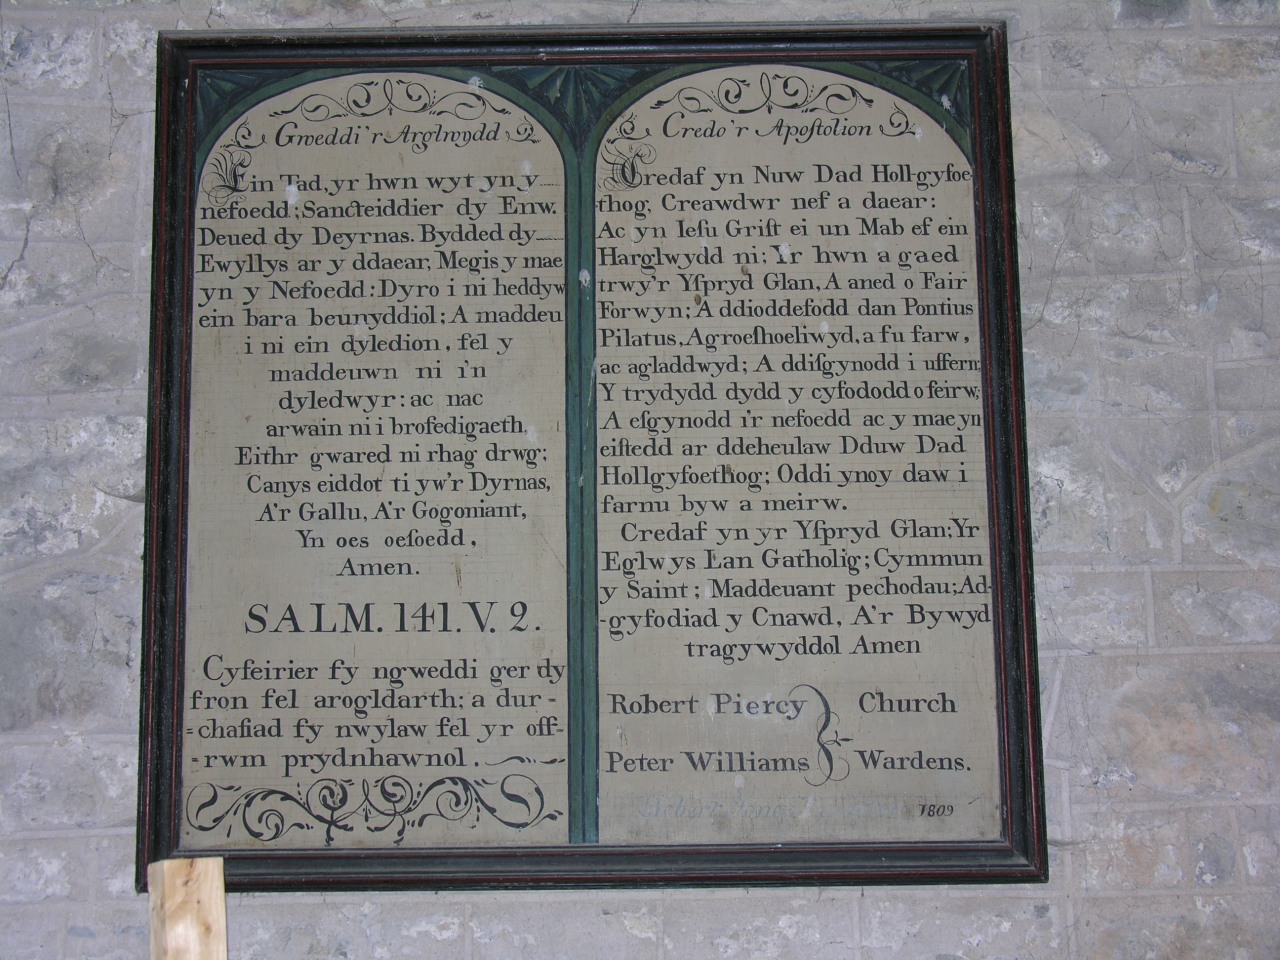 Gweddi'r Arglwydd
Ein Tad, yr hwn wyt yn y
nefoedd; Sancteiddier dy Enw.
Deued dy Deyrnas. Bydded dy
Ewyllys ar y ddaear, Megis y mae
yn y Nefoedd: Dyro i ni heddyw
ein bara beunyddiol; A maddeu
i ni ein dyledion, fel y
maddeuwn ni i'n
dyledwyr: ac nac
arwain ni i brofedigaeth,
Eithr gwared ni rhag drwg;
Canys eiddot ti yw'r Dyrnas,
A'r Gallu, A'r Gogoniant,
Yn oes oesoedd,
Amen.
SALM. 141. V. 2.
Cyfeirier fy ngweddi ger dy
fron fel arogldarth; a dur-
=chafiad fy nwylaw fel yr off-
=rwm prydnhawnol.
Credo'r Apoſtolion
Credaf yn Nuw Dad Holl-gyfoe-
-thog, Creawdwr nef a daear:
Ac yn Ieſu Griſt ei un Mab ef ein
Harglwydd ni; Yr hwn a gaed
trwy'r Yſpryd Glan, A aned o Fair
Forwyn; A ddioddefodd dan Pontius
Pilatus, Agroeſhoeliwyd, a fu farw,
ac agladdwyd; A ddiſgynodd i uffern;
Y trydydd dydd y cyfododd o feirw;
A eſgynodd i'r nefoedd ac y mae yn
eiſtedd ar ddeheulaw Dduw Dad
Hollgyfoethog; Oddi ynoy daw i
farnu byw a meirw.
Credaf yn yr Yſpryd Glan; Yr
Eglwys Lan Gatholig; Cymmun
y Saint; Maddeuant pechodau; Ad-
-gyfodiad y Cnawd, A'r Bywyd
tragywyddol Amen
Robert Piercy Church
Peter Williams Wardens.
1809